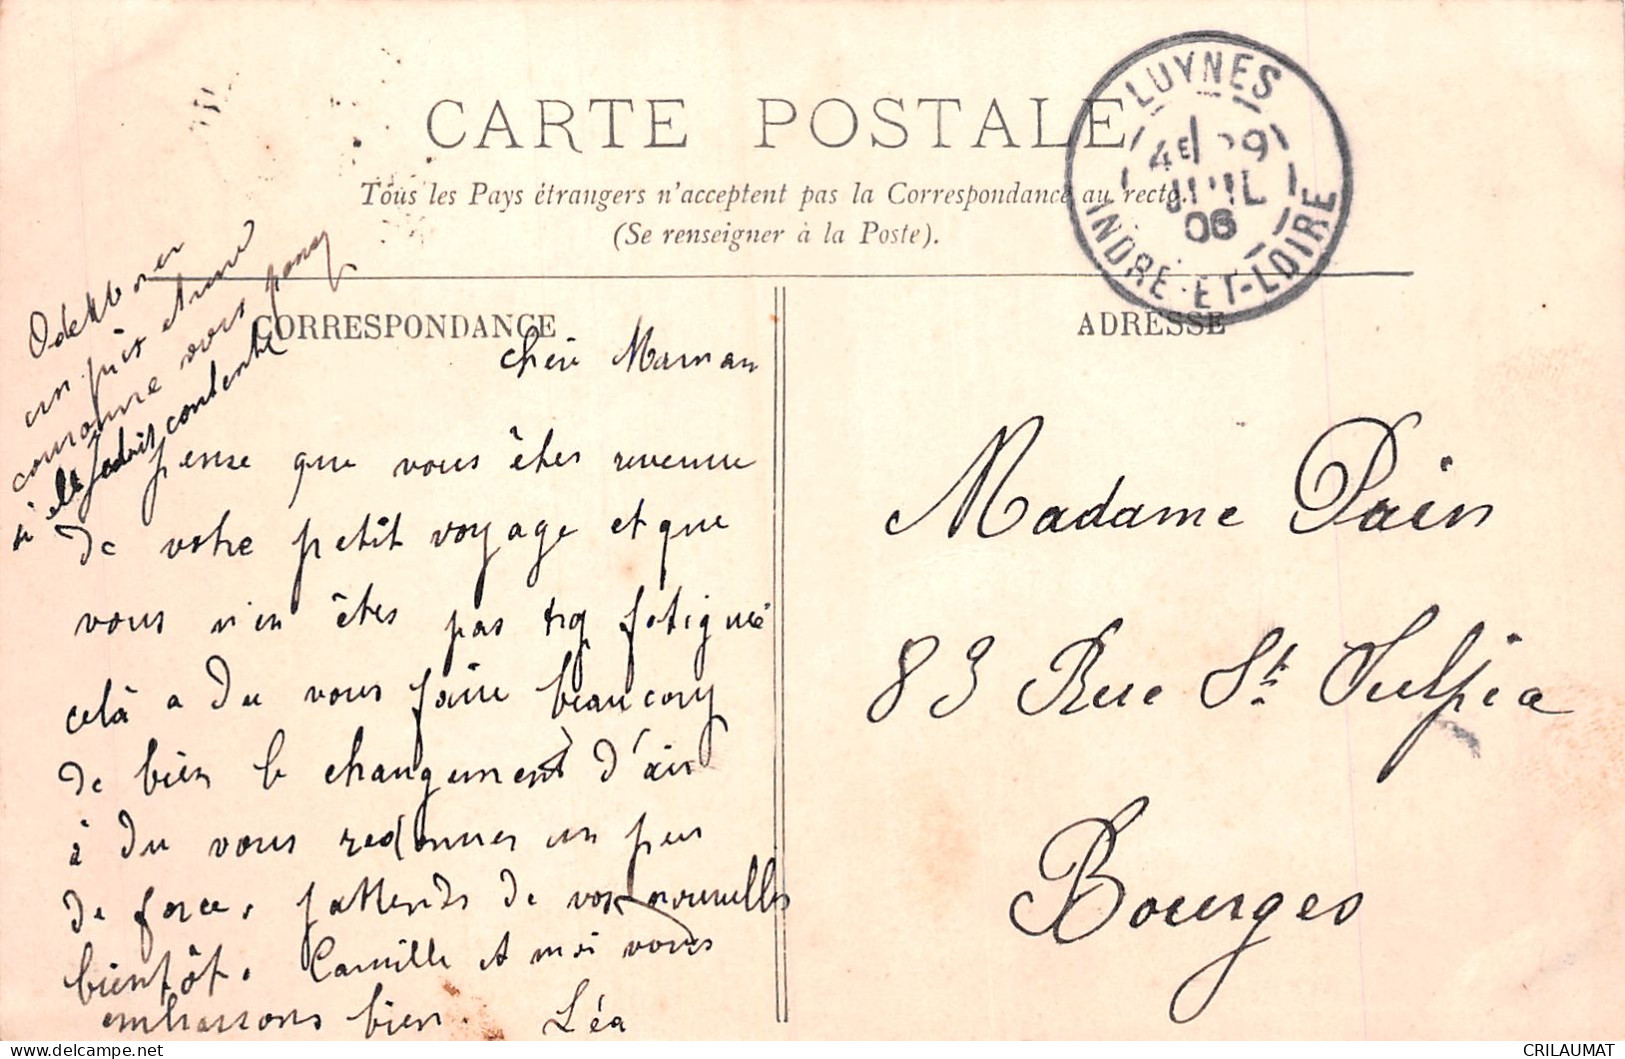 CARTE POSTALE
Tous les Pays étrangers n'acceptent pas la Correspondance au recto.
(Se renseigner à la Poste).
LUYNES
4E 29
JUIL
06
INDRE-ET-LOIRE
CORRESPONDANCE
ADRESSE
Chère Maman
pense que vous êtes revenue
de votre petit voyage et que
vous n'en êtes pas trop fatiguée
celà a du vous faire beaucoup
de bien le changement d'air
à du vous redonner un peu
de force, j'attends de vos nouvelles
bientôt. Camille et moi vous
embrassons bien. Léa
si elle contente
Madame Pain
83 Rue St. Sulpice
Bourges
CRILAUMAT